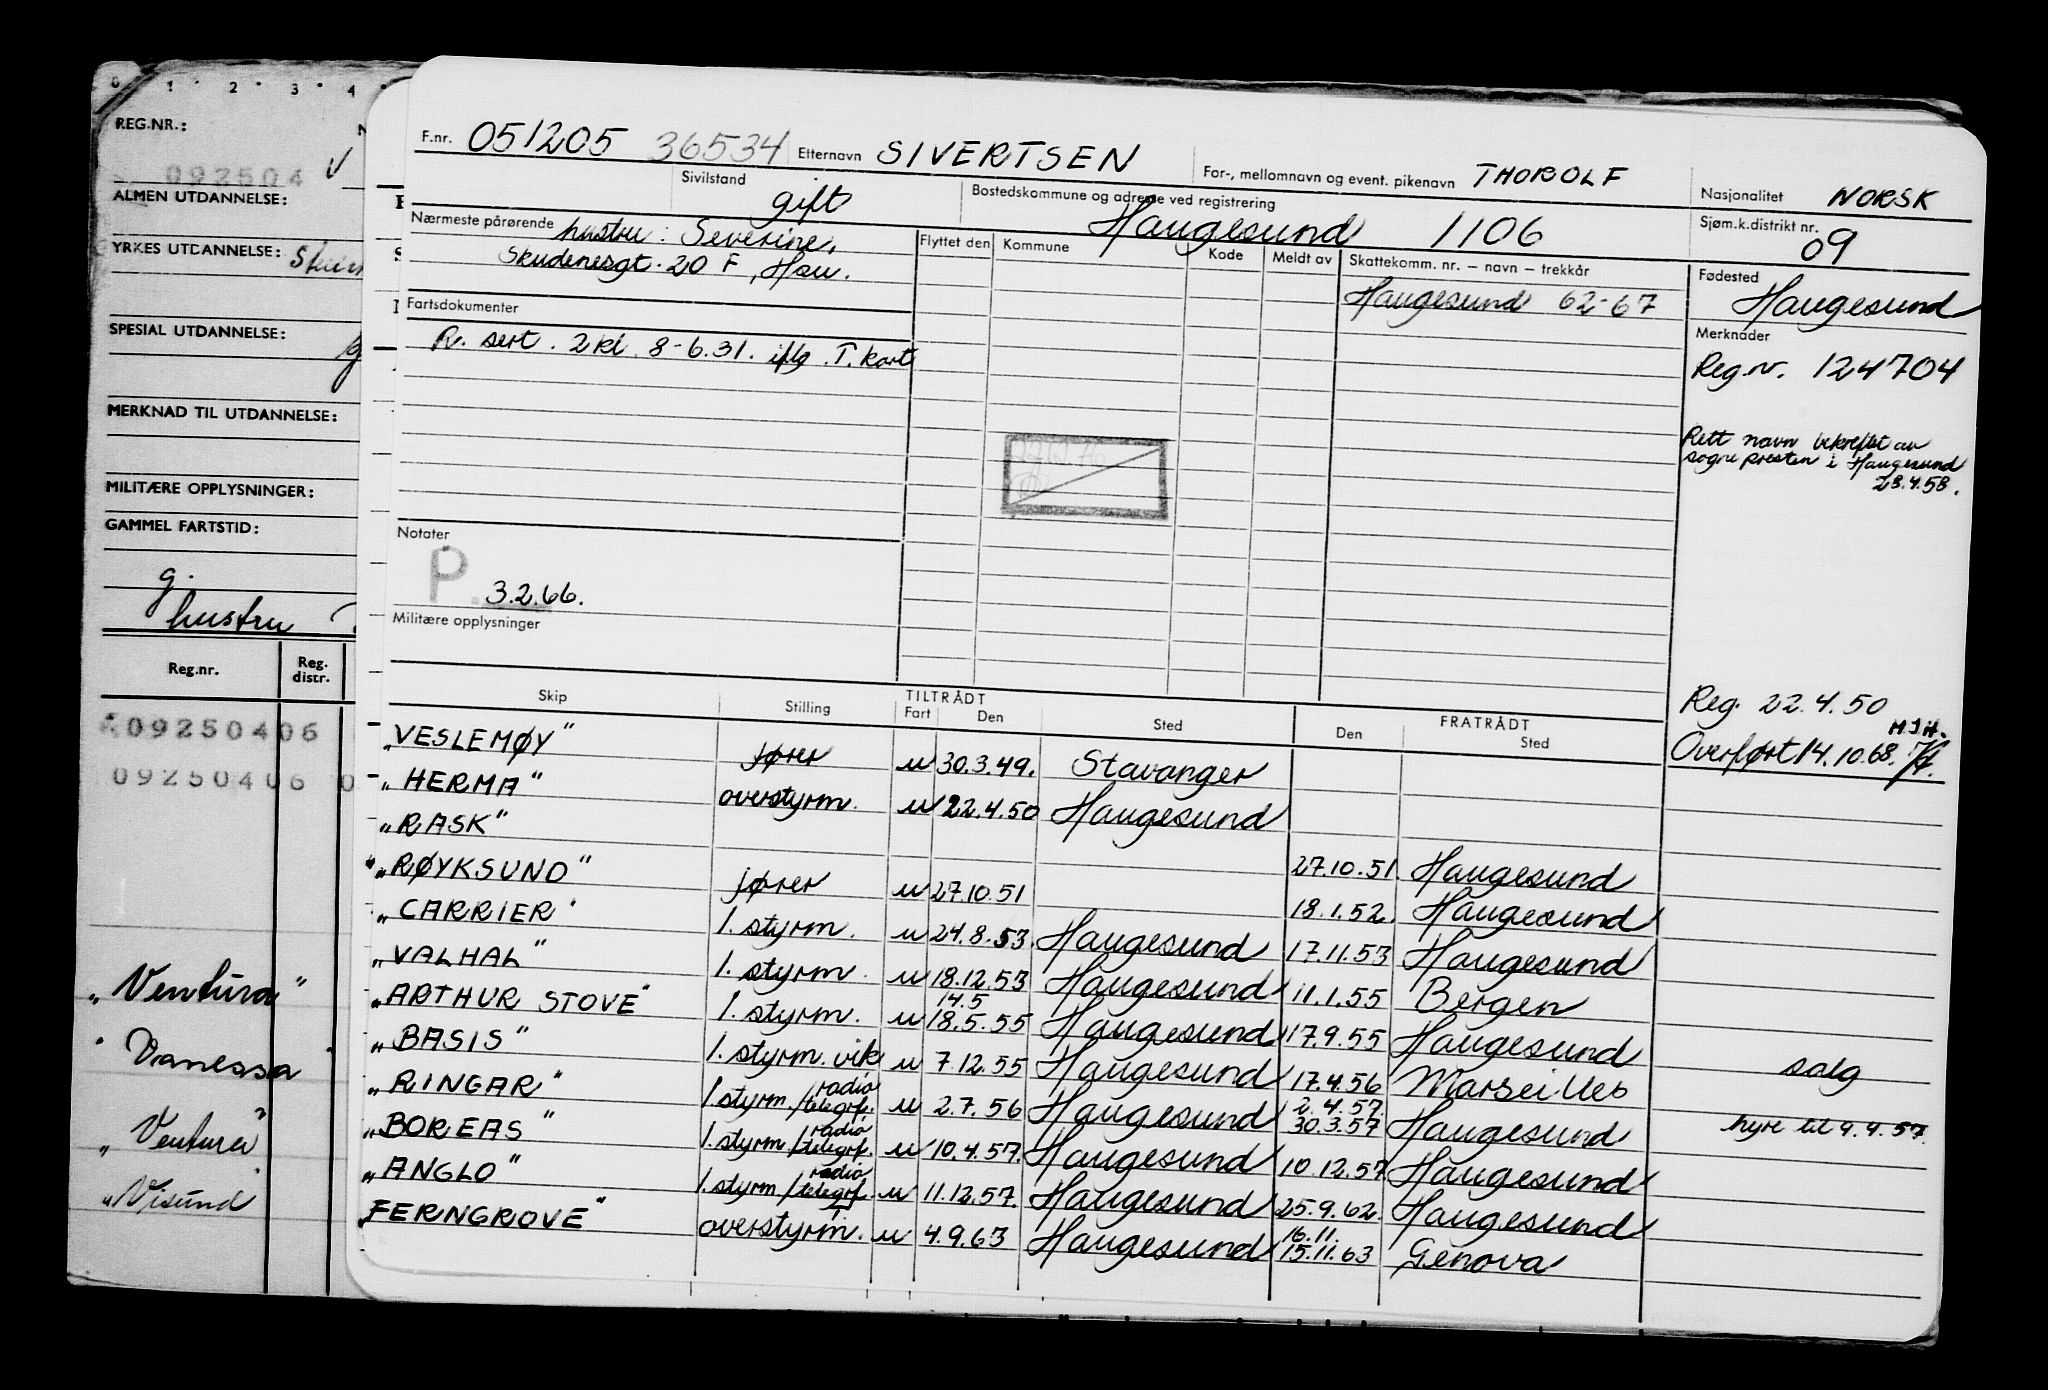 0 1 2 3 4
REG.NR.:
092504
ALMEN UTDANNELSE:
YRKES UTDANNELSE:
SPESIAL UTDANNELSE:
MERKNAD TIL UTDANNELSE:
MILITÆRE OPPLYSNINGER:
GAMMEL FARTSTID:
g.
hustru
Reg.nr. Reg. distr.
09250406
09250406 0
"Ventura"
"Vanessa"
"Ventura"
"Visund"
F.nr. 051205 36534 Etternavn SIVERTSEN For-, mellomnavn og event. pikenavn THOROLF Nasjonalitet NORSK
Sivilstand gift Bostedskommune og adresse ved registrering Haugesund 1106 Sjøm.k.distrikt nr. 09
Nærmeste pårørende hustru: Severine,
Skudenesgt. 20 F, Hau.
Flyttet den Kommune Kode Meldt av Skattekomm. nr. – navn – trekkår
Haugesund 62-67
Fødested Haugesund
Fartsdokumenter
R. sert. 2 kl 8-6.31. iflg. T. kort
Merknader
Reg.nr. 124704
Rett navn bekreftet av
sogne presten i Haugesund
28.4.58.
Notater
P. 3.2.66.
Militære opplysninger
Reg. 22.4.50
Overført 14.10.68.
Skip Stilling TILTRÅDT Fart Den Sted FRATRÅDT Den Sted
"VESLEMØY" fører u 30.3.49. Stavanger
"HERMA" overstyrm. u 22.4.50 Haugesund
"RASK" 27.10.51. Haugesund
"RØYKSUND" fører u 27.10.51 18.1.52. Haugesund
"CARRIER" 1. styrm. u 24.8.53. Haugesund 17.11.53 Haugesund
"VALHAL" 1. styrm. u 18.12.53 Haugesund 11.1.55 Bergen
"ARTHUR STOVE" 1. styrm. u 14.5 18.5.55 Haugesund 17.9.55 Haugesund
"BASIS" 1. styrm. vik u 7.12.55 Haugesund 17.4.56 Marseilles salg
"RINGAR" 1. styrm./radio telegrf. u 2.7.56 Haugesund 2.4.57. 30.3.57 Haugesund hyre til 9.4.57.
"BOREAS" 1. styrm/radio telegrf. u 10.4.57. Haugesund 10.12.57 Haugesund
"ANGLO" 1. styrm/radio telegrf. u 11.12.57. Haugesund 25.9.62. Haugesund
"FERNGROVE" overstyrm. u 4.9.63 Haugesund 16.11. 15.11.63 Genova